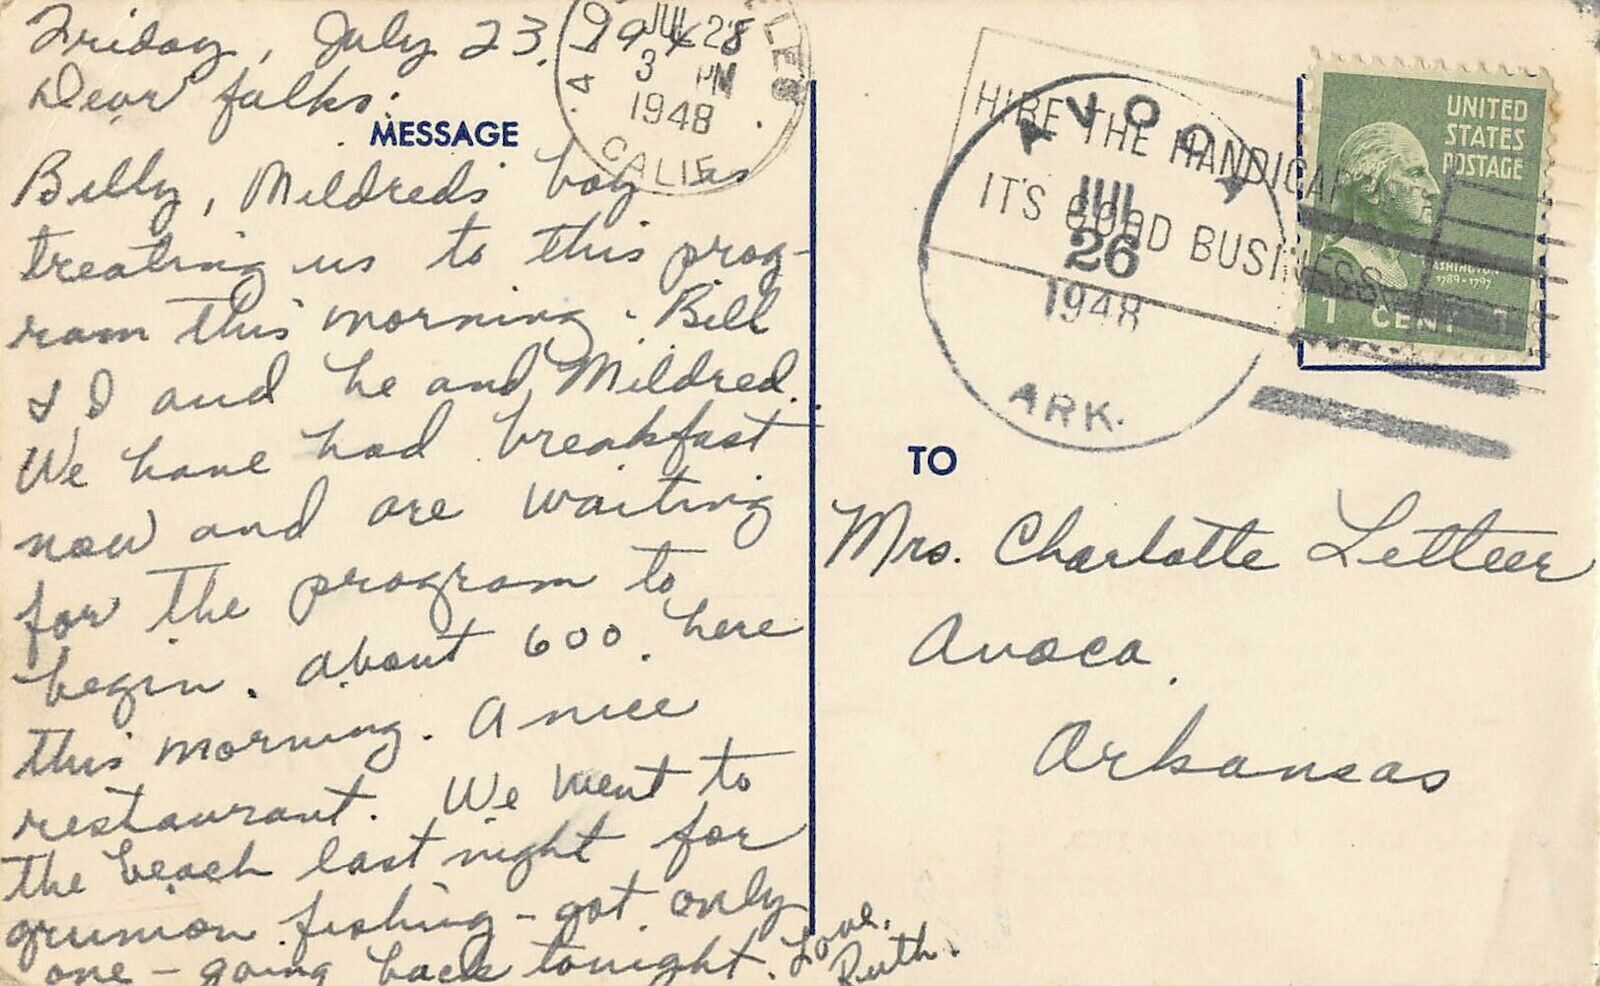 Friday, July 23, 1948
Dear folks:
MESSAGE
Billy, Mildred's boy is
treating us to this prog-
ram this morning. Bill
& I and he and Mildred.
We have had breakfast
now and are waiting
for the program to
begin. About 600 here
this morning. A nice
restaurant. We went to
the beach last night for
grunion fishing - got only
one - going back tonight. Love,
Ruth.
JUL 23
3 PM
1948
CALIF
AVOCA
JUL
26
1948
ARK.
HIRE THE HANDICAPPED
IT'S GOOD BUSINESS
UNITED
STATES
POSTAGE
WASHINGTON
1789-1797
1 CENT 1
TO
Mrs. Charlotte Letteer
Avoca,
Arkansas